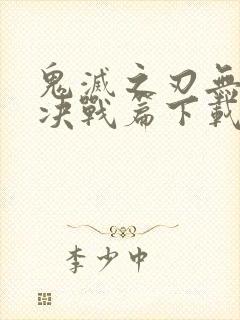 鬼滅之刃無
决戰篇下載
李少中